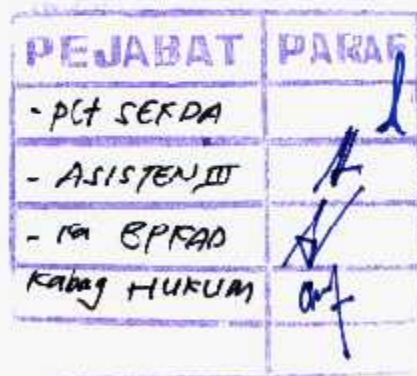 PEJABAT PARAF
- Plt SEKDA
- ASISTEN III
- Ka BPKAD
Kabag HUKUM